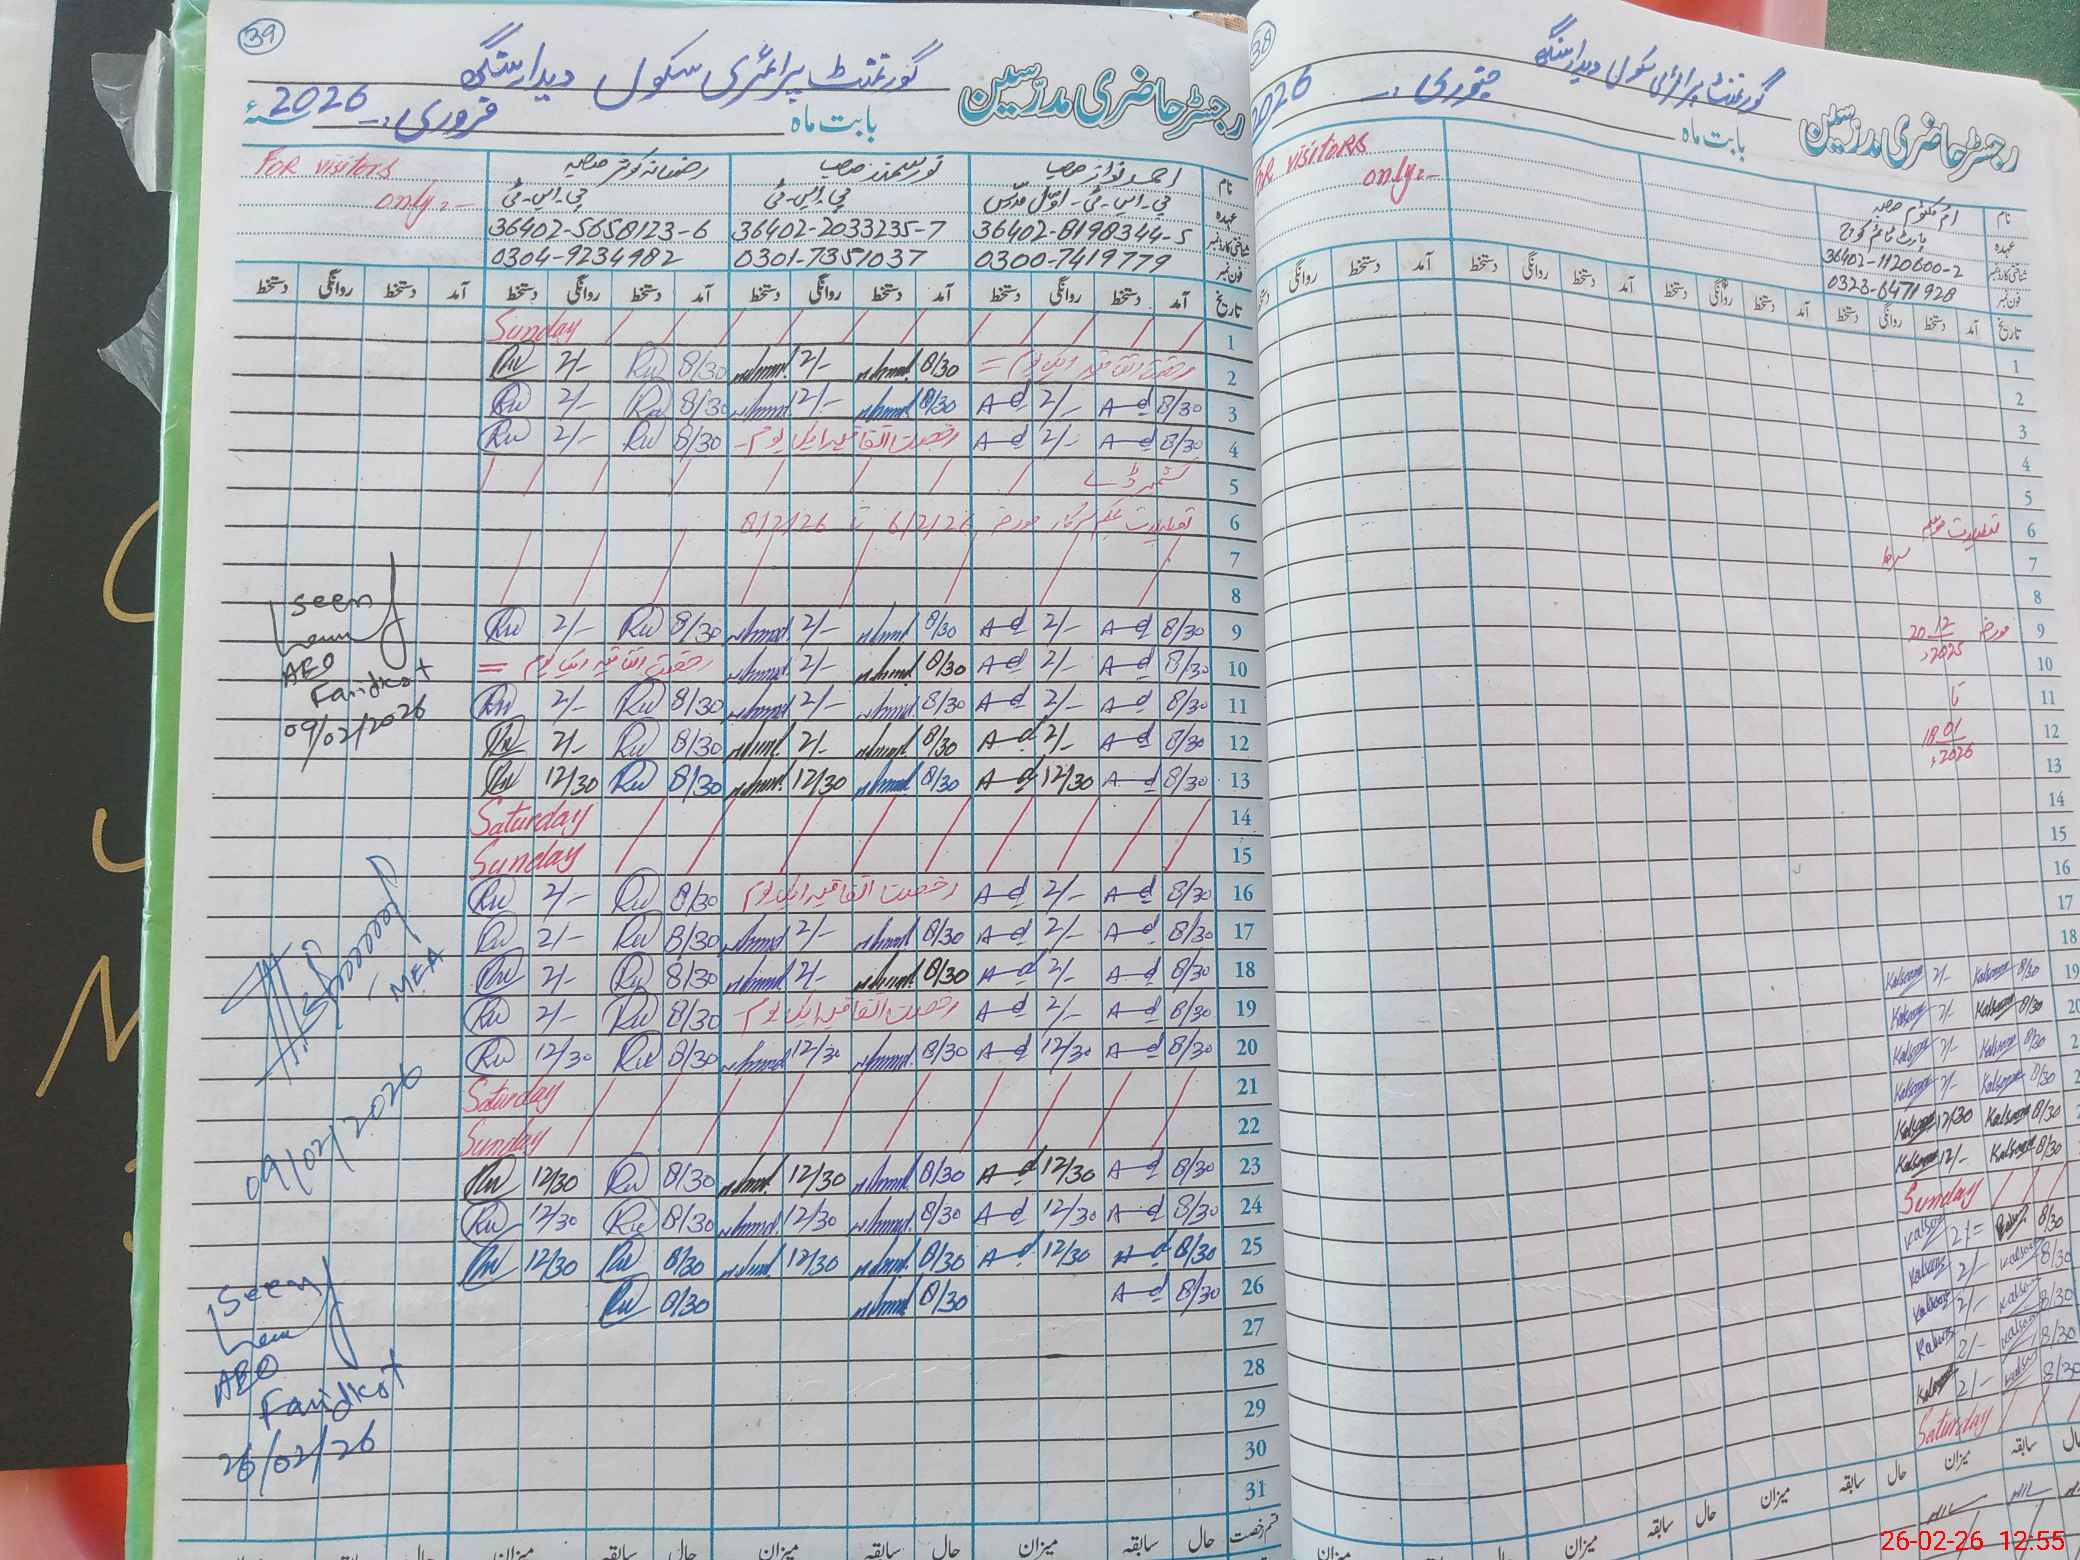 39
گورنمنٹ پرائمری سکول دیدار سنگھ
رجسٹر حاضری مدرّسین
بابت ماہ فروری 2026ء
نام احمد نواز صاحب
نورسمند صاحب
رضسانہ کوثر صاحبہ
FOR visitors
only:-
عہدہ پی۔ایس۔ٹی۔ اوّل مدرّس
پی۔ایس۔ٹی
پی۔ایس۔ٹی
شناختی کارڈ نمبر 36402-8198344-5 36402-2033235-7 36402-5658123-6
فون نمبر 0300-7419779 0301-7351037 0304-9234982
تاریخ آمد دستخط روانگی دستخط آمد دستخط روانگی دستخط آمد دستخط روانگی دستخط آمد دستخط روانگی دستخط
1 Sunday
2 رخصت اتفاقیہ ایک یوم = 8/30 2/- 8/30 Ru 2/- Ru
3 8/30 A-d 2/- A-d 8/30 2/- 8/30 Ru 2/- Ru
4 8/30 A-d 2/- A-d رخصت اتفاقیہ ایک یوم 8/30 Ru 2/- Ru
5 کشمیر ڈے
6 تعطیلات بحکم سرکار مورخہ 6/2/26 تا 8/2/26
7
8
9 8/30 A-d 2/- A-d 8/30 2/- 8/30 Ru 2/- Ru
10 8/30 A-d 2/- A-d 8/30 2/- رخصت اتفاقیہ ایک یوم =
11 8/30 A-d 2/- A-d 8/30 2/- 8/30 Ru 2/- Ru
12 8/30 A-d 2/- A-d 8/30 2/- 8/30 Ru 2/- Ru
13 8/30 A-d 12/30 A-d 8/30 12/30 8/30 Ru 12/30 Ru
14 Saturday
15 Sunday
16 8/30 A-d 2/- A-d رخصت اتفاقیہ ایک یوم 8/30 Ru 2/- Ru
17 8/30 A-d 2/- A-d 8/30 2/- 8/30 Ru 2/- Ru
18 8/30 A-d 2/- A-d 8/30 2/- 8/30 Ru 2/- Ru
19 8/30 A-d 2/- A-d رخصت اتفاقیہ ایک یوم 8/30 Ru 2/- Ru
20 8/30 A-d 12/30 A-d 8/30 12/30 8/30 Ru 12/30 Ru
21 Saturday
22 Sunday
23 8/30 A-d 12/30 A-d 8/30 12/30 8/30 Ru 12/30 Ru
24 8/30 A-d 12/30 A-d 8/30 12/30 8/30 Ru 12/30 Ru
25 8/30 A-d 12/30 A-d 8/30 12/30 8/30 Ru 12/30 Ru
26 8/30 A-d 8/30 8/30 Ru
27
28
29
30
31
قسم رخصت حال سابقہ میزان حال سابقہ میزان حال سابقہ میزان حال سابقہ
Seen
AEO
Faridkot
09/02/2026
MEA
09/02/2026
Seen
AEO
Faridkot
26/02/26
38
گورنمنٹ پرائمری سکول دیدار سنگھ
رجسٹر حاضری مدرّسین
بابت ماہ جنوری 2026
FOR visitors
only:-
نام ام کلثوم صاحبہ
عہدہ پارٹ ٹائم کوچ
شناختی کارڈ نمبر 36402-1120600-2
فون نمبر 0323-6471928
تاریخ آمد دستخط روانگی دستخط آمد دستخط روانگی دستخط آمد دستخط روانگی دستخط آمد دستخط روانگی
1
2
3
4
5
6 تعطیلات موسم
7 سرما
8
9 مورخہ 20 12
10 2025ء
11 تا
12 18 01
13 2026ء
14
15
16
17
18
19 8/30 Kalsoom 2/- Kalsoom
20 8/30 Kalsoom 2/- Kalsoom
8/30 Kalsoom 2/- Kalsoom
8/30 Kalsoom 2/- Kalsoom
8/30 Kalsoom 12/30 Kalsoom
8/30 Kalsoom 12/- Kalsoom
Sunday
8/30 2/= Kalsoom
8/30 Kalsoom 2/- Kalsoom
8/30 Kalsoom 2/- Kalsoom
8/30 Kalsoom 2/- Kalsoom
8/30 Kalsoom 2/- Kalsoom
Saturday
حال سابقہ میزان حال سابقہ میزان حال سابقہ میزان
NIL NIL
26-02-26 12:55